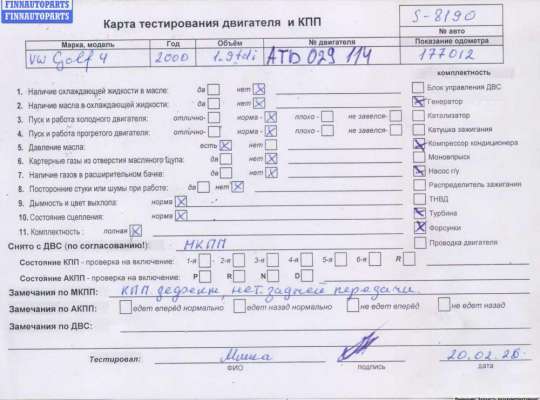 FINNAUTOPARTS
FINNAUTOPARTS
Карта тестирования двигателя и КПП
S-8190
№ авто
Марка, модель Год Объём № двигателя Показание одометра
VW Golf 4 2000 1.9tdi ATD 029 114 177012
комплектность
1. Наличие охлаждающей жидкости в масле: да нет
2. Наличие масла в охлаждающей жидкости: да нет
3. Пуск и работа холодного двигателя: отлично- норма - плохо - не завелся-
4. Пуск и работа прогретого двигателя: отлично- норма - плохо - не завелся-
5. Давление масла: есть нет
6. Картерные газы из отверстия масляного щупа: да нет
7. Наличие газов в расширительном бачке: да нет
8. Посторонние стуки или шумы при работе: да нет
9. Дымность и цвет выхлопа: норма
10. Состояние сцепления: норма
11. Комплектность : полная
Блок управления ДВС
Генератор
Катализатор
Катушка зажигания
Компрессор кондиционера
Моновпрыск
Насос г/у
Распределитель зажигания
ТНВД
Турбина
Форсунки
Проводка двигателя
Снято с ДВС (по согласованию!): МКПП
Состояние КПП - проверка на включение: 1-я - 2-я - 3-я - 4-я 5-я 6-я R
Состояние АКПП - проверка на включение: P R N D
Замечания по МКПП: КПП дефект, нет задней передачи.
Замечания по АКПП: едет вперёд нормально едет назад нормально не едет вперёд не едет назад
Замечания по ДВС:
Тестировал: Миша 20.02.26
ФИО подпись дата